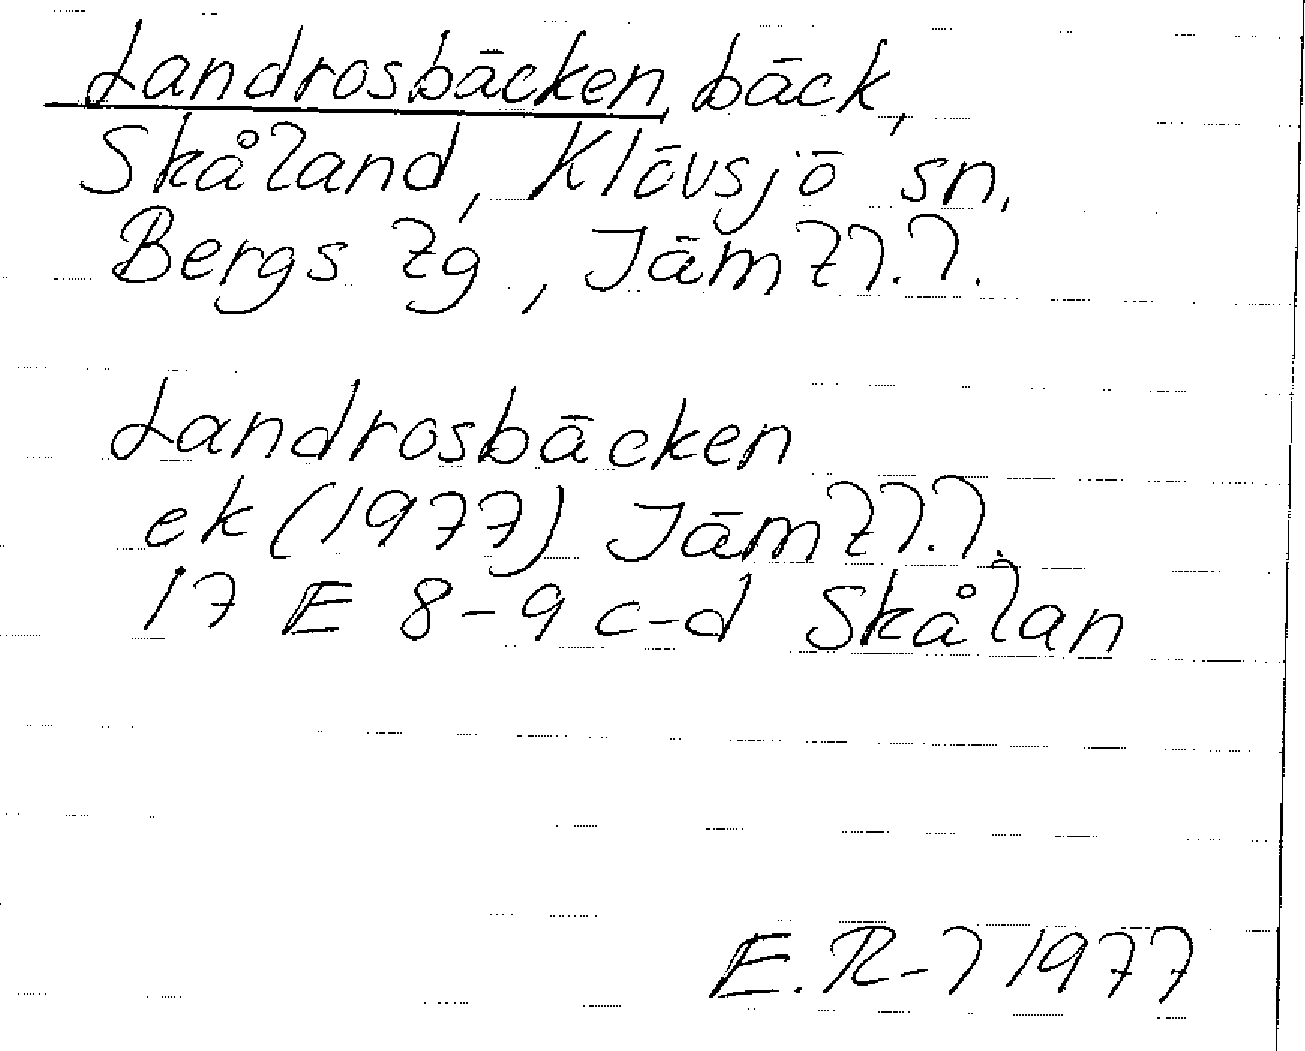 Landrosbäcken, bäck,
Skåland, Klövsjö sn,
Bergs tg, Jämtl.l.
Landrosbäcken
ek (1977) Jämtl.l.
17 E 8-9 c-d Skålan
E.R-l 1977